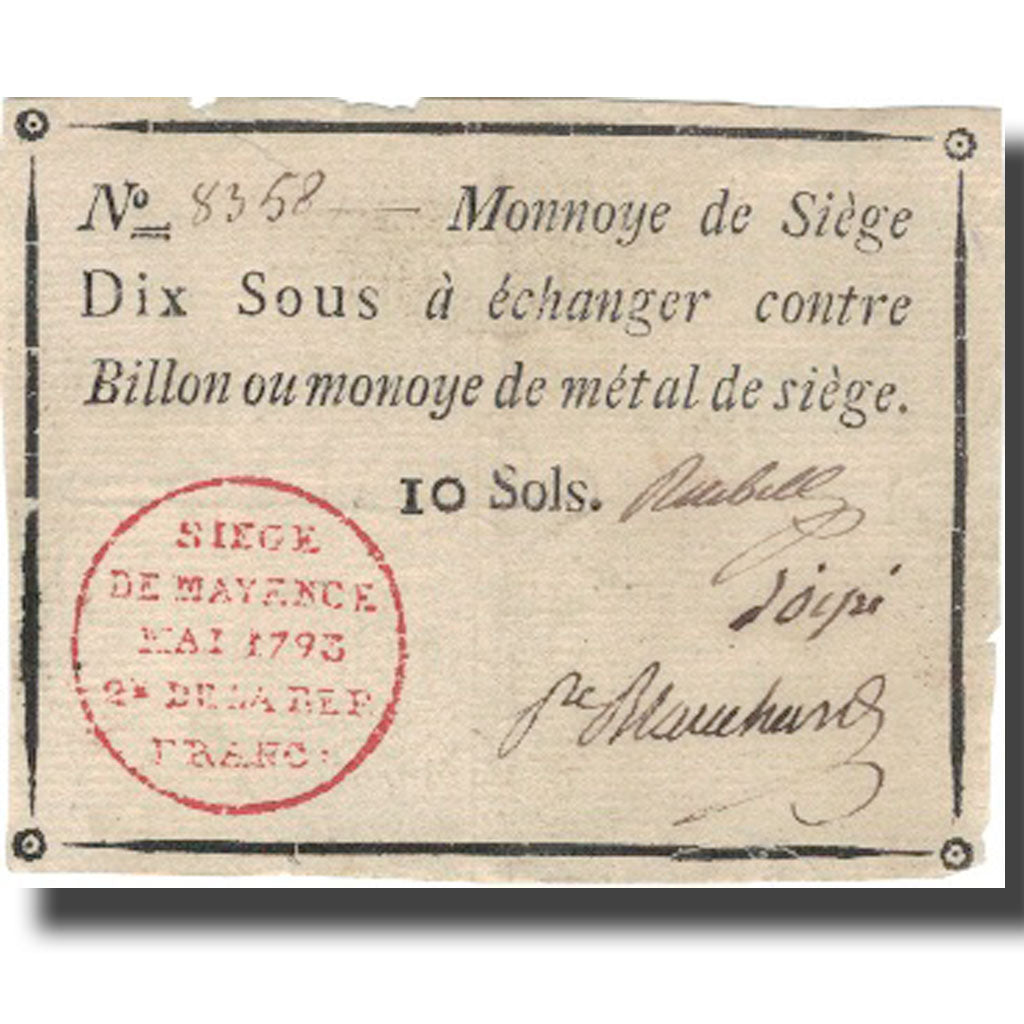 No. 8358 Monnoye de Siège
Dix Sous à échanger contre
Billon ou monoye de métal de siège.
10 Sols.
SIEGE
DE MAYENCE
MAI 1793
2E DE LA REP
FRANC:
Blanchard